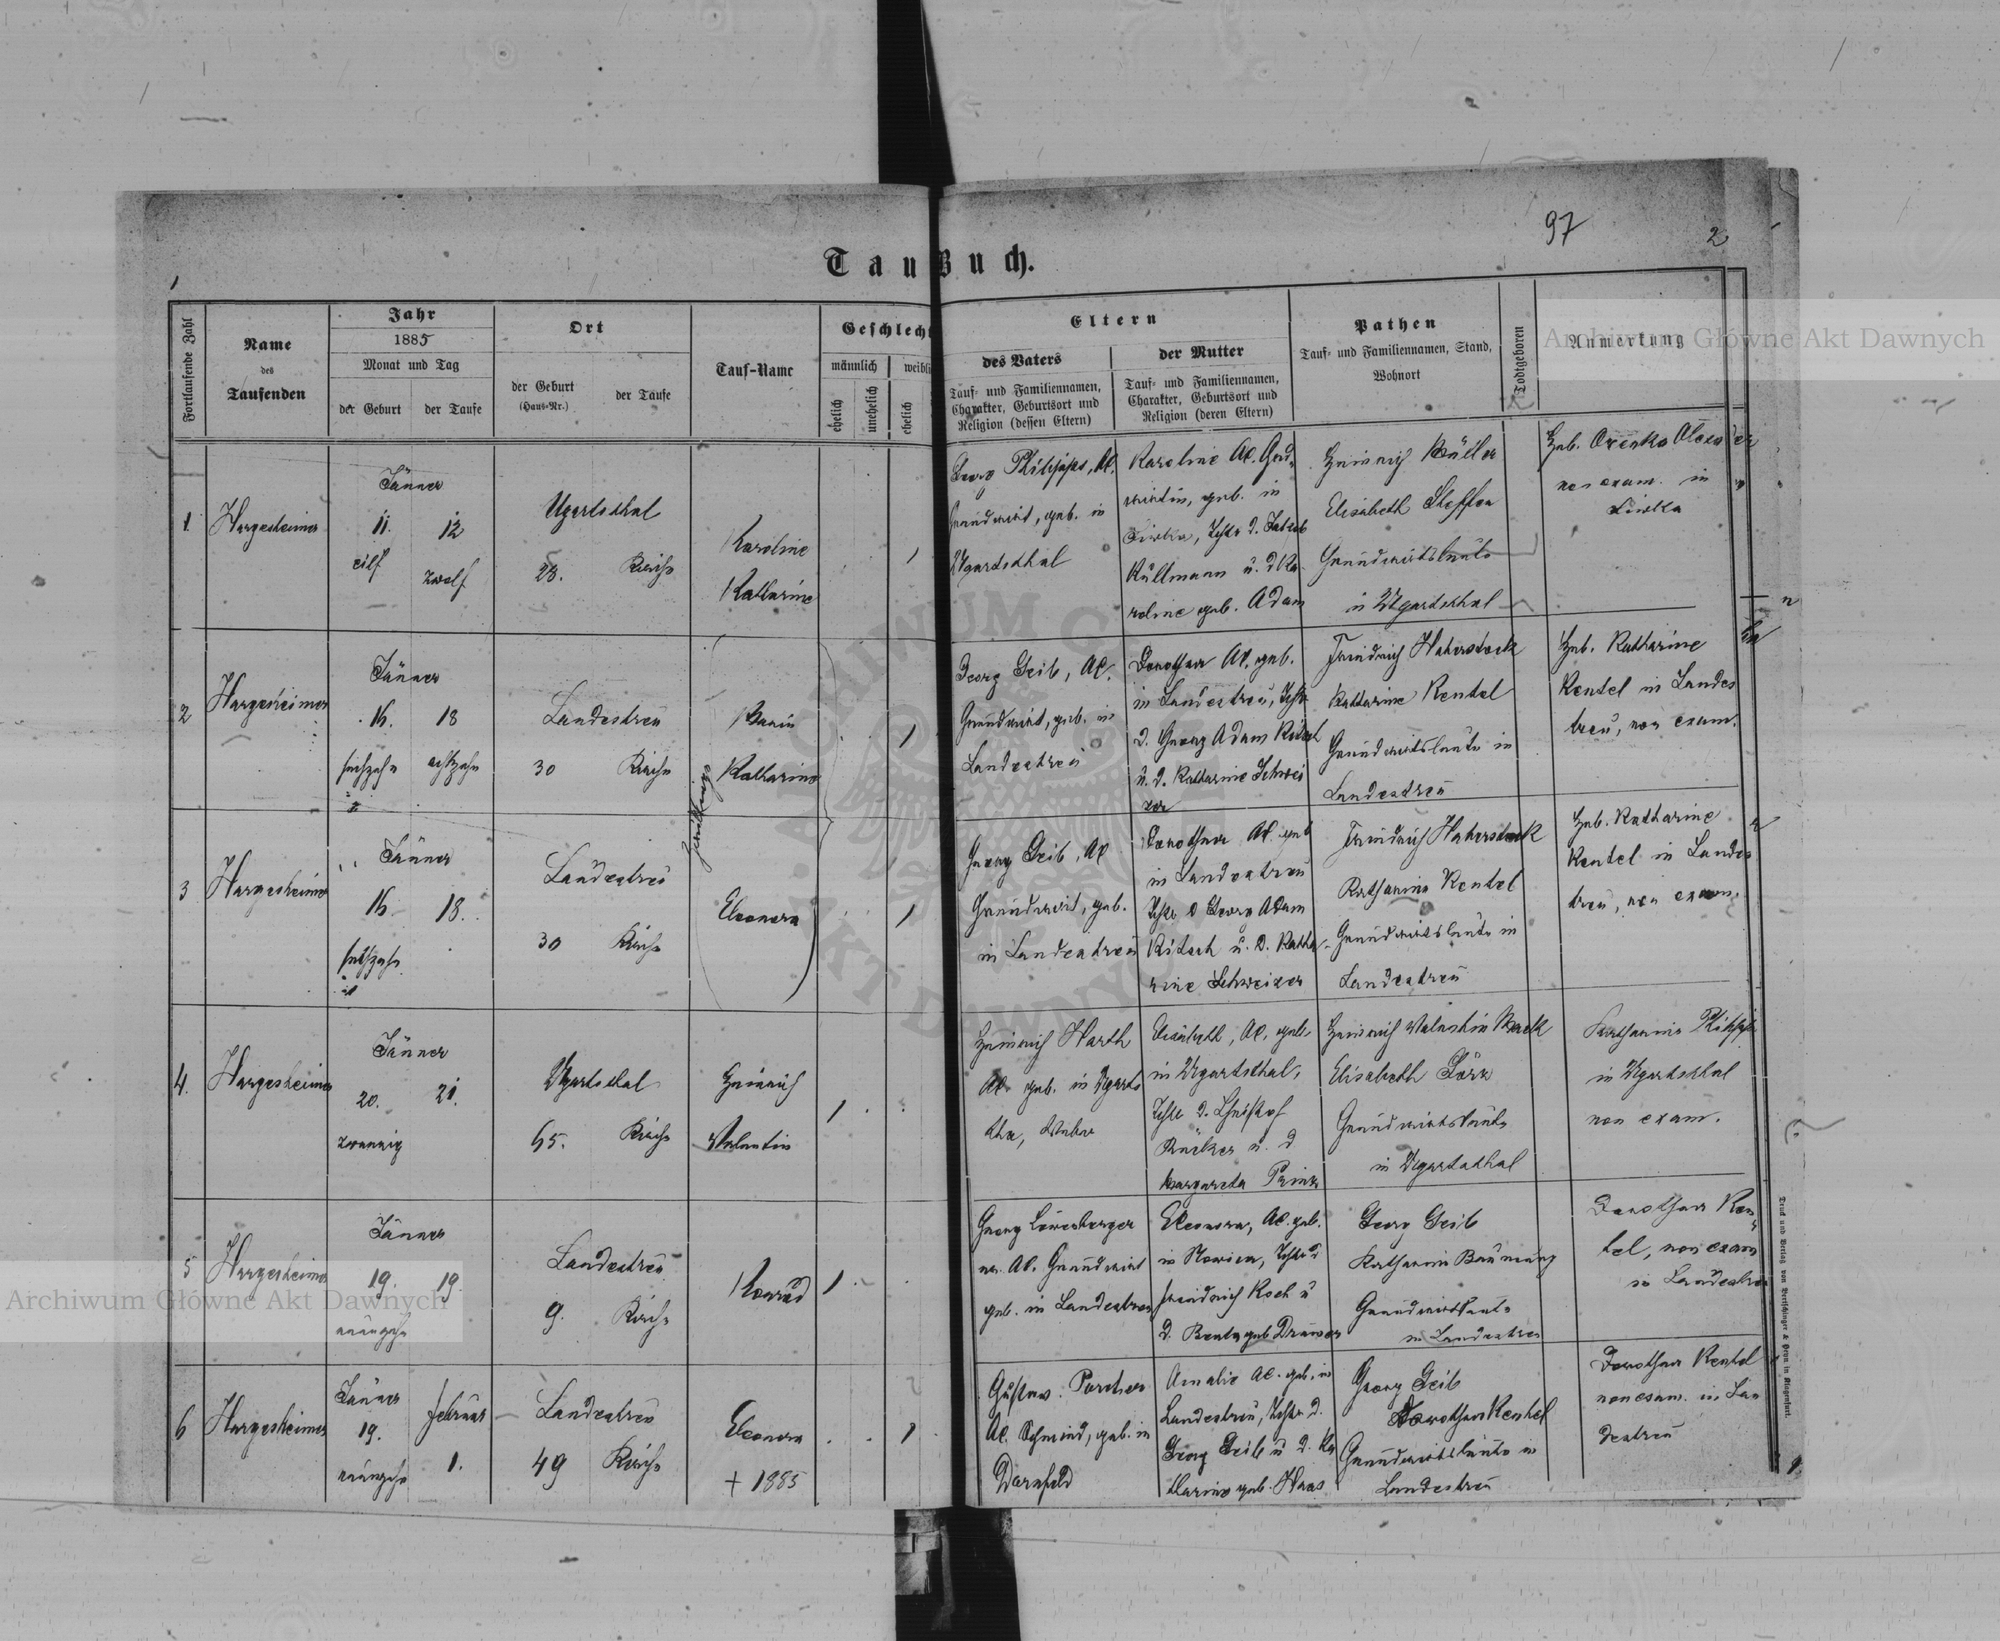 97
2
1
Tauf Buch.
Fortlaufende Zahl
Name
des
Taufenden
Jahr
1885
Monat und Tag
der Geburt
der Taufe
Ort
der Geburt
(Haus-Nr.)
der Taufe
Tauf-Name
Geschlecht
männlich
weibli
ehelich
unehelich
ehelich
Eltern
des Vaters
Tauf- und Familiennamen,
Charakter, Geburtsort und
Religion (dessen Eltern)
der Mutter
Tauf- und Familiennamen,
Charakter, Geburtsort und
Religion (deren Eltern)
Pathen
Tauf- und Familiennamen, Stand,
Wohnort
Todtgeboren
Anmerkung
1.
Hargesheimer
Jänner
11.
12
eilf
zwölf
Ugartsthal
28.
Kirche
Karoline
Katharine
1
Georg Philipps, AC.
Grundwirt, geb. in
Ugartsthal
Karoline AC. Grund-
wirtin, geb. in
Siwka, Tcht. d. Jakob
Küllmann u. d. Ka-
roline geb. Adam
Heinrich Müller
Elisabeth Steffen
Grundwirtsleute
in Ugartsthal
Heb. Orenko Alexander
non exam. in
Siwka
2
Hargesheimer
Jänner
16.
18
sechzehn
achtzehn
Landestreu
30
Kirche
Maria
Katharina
Zwillinge
1
Georg Geib, AC.
Grundwirt, geb. in
Landestreu
Dorothea AC. geb.
in Landestreu, Tcht.
d. Georg Adam Kitsch
u. d. Katharine Schwei
zer
Friedrich Haberstock
Katharine Rentel
Grundwirtsleute in
Landestreu
Heb. Katharine
Rentel in Landes
treu, non exam.
3
Hargesheimer
Jänner
16
18.
sechzehn
Landestreu
30
Kirche
Eleonora
1
Georg Geib, AC
Grundwirt, geb.
in Landestreu
Dorothea AC. geb
in Landestreu
Tcht. d Georg Adam
Kitsch u. d. Katha
rine Schweizer
Friedrich Haberstock
Katharina Rentel
Grundwirtsleute in
Landestreu
Heb. Katharine
Rentel in Landes
treu, non exam.
4.
Hargesheimer
Jänner
20.
21.
zwanzig
Ugartsthal
65.
Kirche
Heinrich
Valentin
1
Heinrich Harth
AC. geb. in Ugarts
thal, Weber
Elisabeth, AC. geb.
in Ugartsthal,
Tcht. d. Christof
Rücker u. d
Margareta Prinz
Heinrich Valentin Mack
Elisabeth Görz
Grundwirtsleute
in Ugartsthal
Katharina Philipps
in Ugartsthal
non exam.
5
Hargesheimer
Jänner
19.
19.
neunzehn
Landestreu
9.
Kirche
Konrad
1
Georg Löwenberger
AC. Grundwirt
geb. in Landestreu
Eleonora, AC. geb.
in Nowica, Tcht. d
Friedrich Koch u
d. Beata geb. Drewes
Georg Geib
Katharina Baumung
Grundwirtsleute
in Landestreu
Dorothea Ren-
tel, non exam
in Landestreu
6
Hargesheimer
Jänner
19.
neunzehn
Februar
1.
Landestreu
49
Kirche
Eleonora
+ 1885
1
Gustav Porcher
AC. Schmied, geb. in
Dornfeld
Amalie AC. geb. in
Landestreu, Tcht. d.
Georg Geib u d. Ka
tharine geb. Haas
Georg Geib
Dorothea Rentel
Grundwirtsleute in
Landestreu
Dorothea Rentel
non exam. in Lan
destreu
Druck und Verlag von Bertschinger & Heyn in Klagenfurt.
Archiwum Główne Akt Dawnych
Archiwum Główne Akt Dawnych